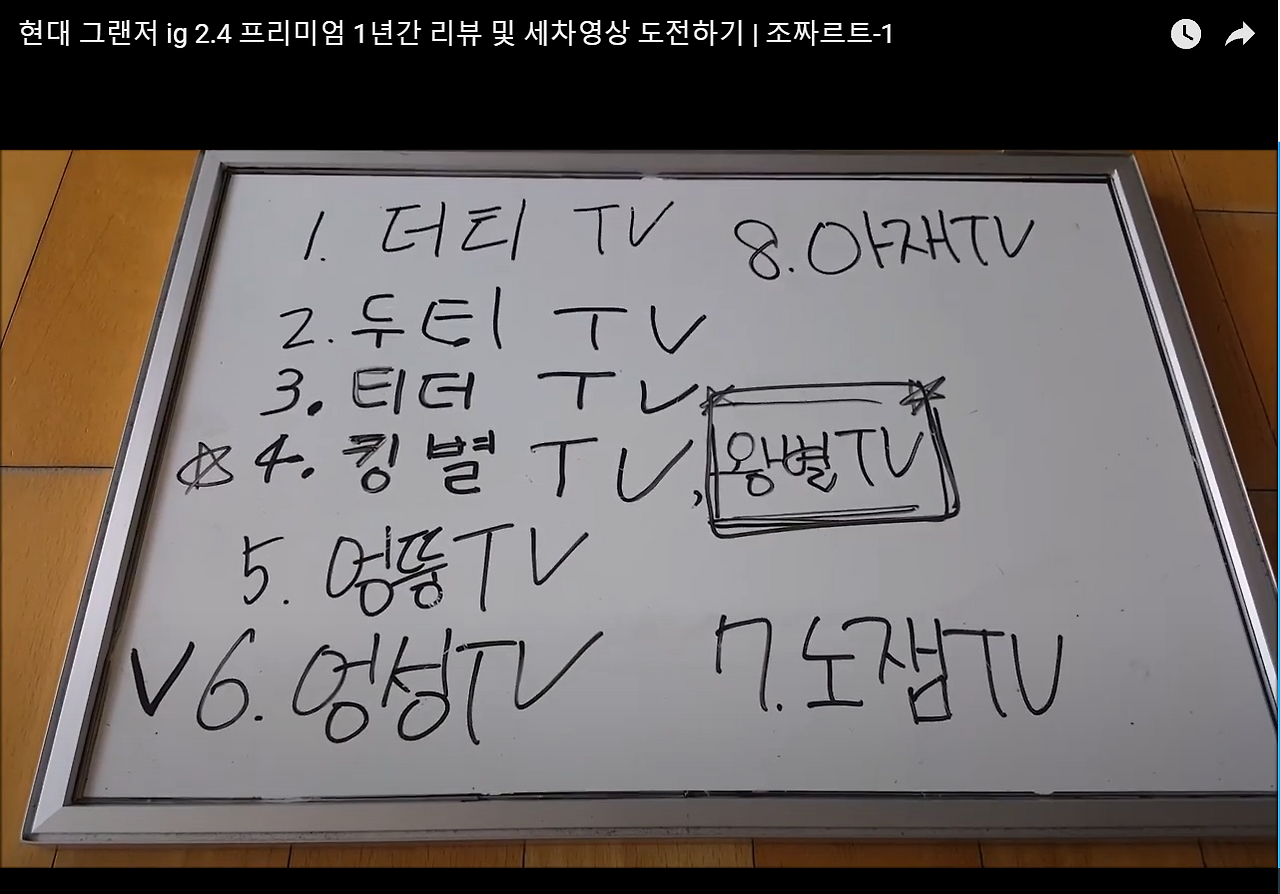 현대 그랜저 ig 2.4 프리미엄 1년간 리뷰 및 세차영상 도전하기 | 조짜르트-1
1. 더티 TV
8. 아재TV
2. 두티 TV
3. 티더 TV
☆4. 킹별 TV, 왕별TV
5. 엉뚱TV
V6. 엉성TV
7. 노잼TV